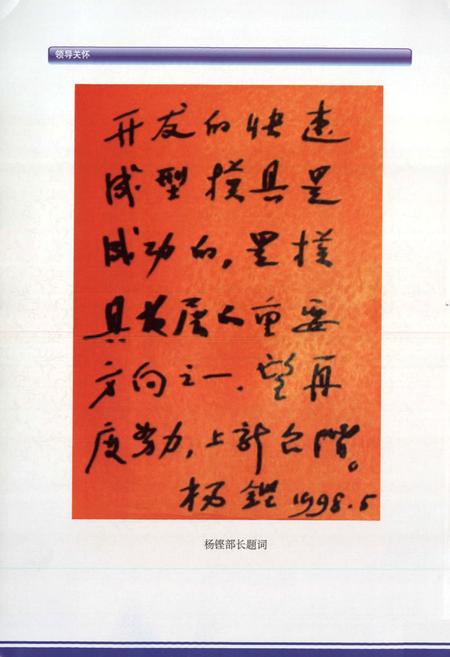 领导关怀
开发的快速
成型模具是
成功的，是模
具发展的重要
方向之一．望再
度努力，上新台阶。
杨铿 1998.5
杨铿部长题词